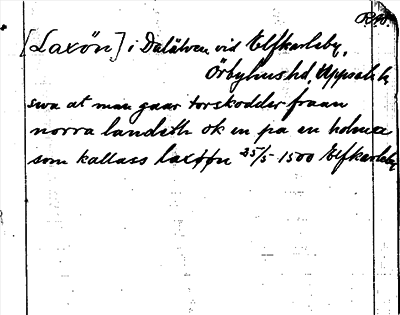 RAp.
[Laxön] i Dalälven vid Elfkarleby,
Örbyhus hd, Uppsala l.
swa at man gaar torskodder fraan
norra landeth ok en pa en holme
som kallass laxøøn 25/5 1500 Elfkarleby